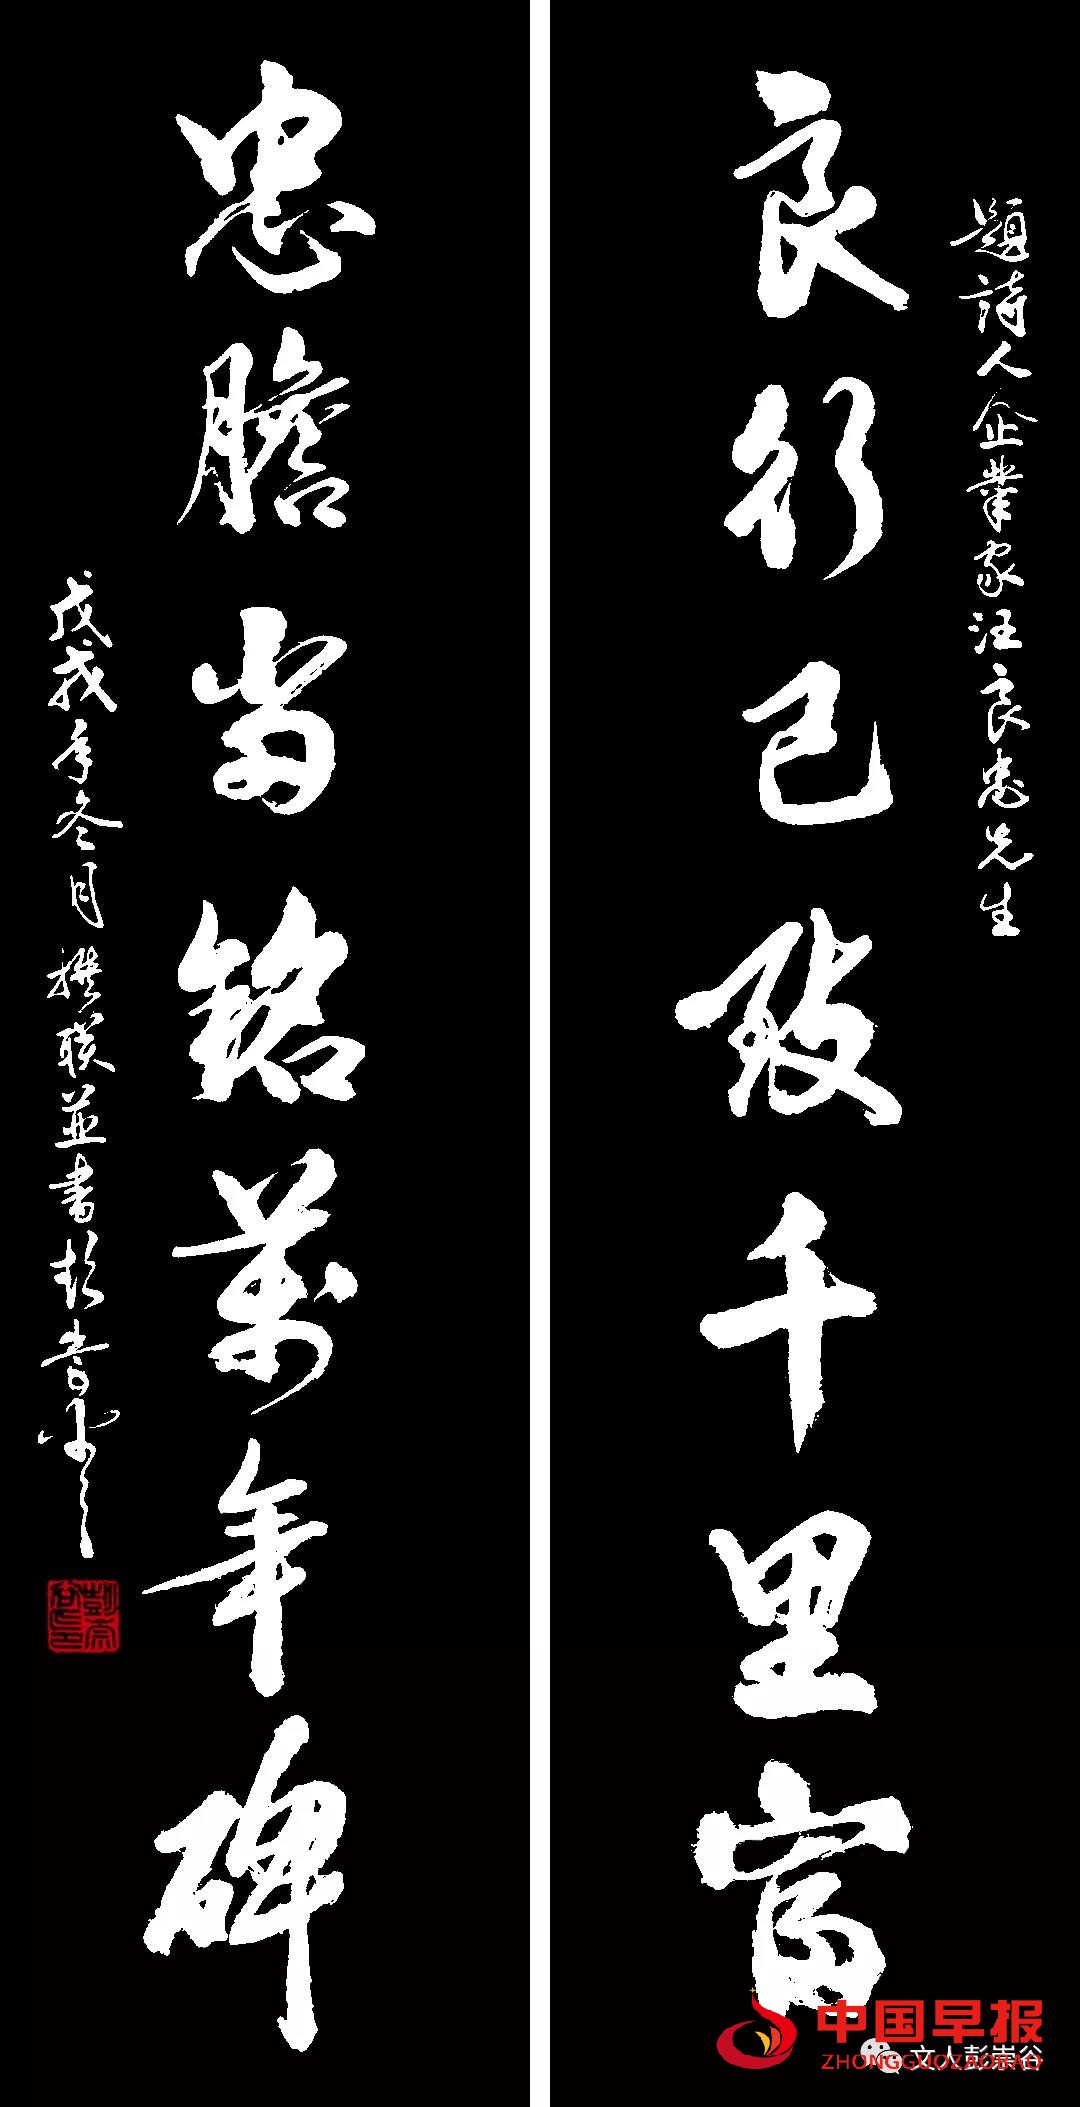 題詩人企業家汪良忠先生
良行已致千里富
忠膽當銘萬年碑
戊戌年冬月撰联並書彭崇谷
中国早报
ZHONGGUOZAOBAO
文人彭崇谷